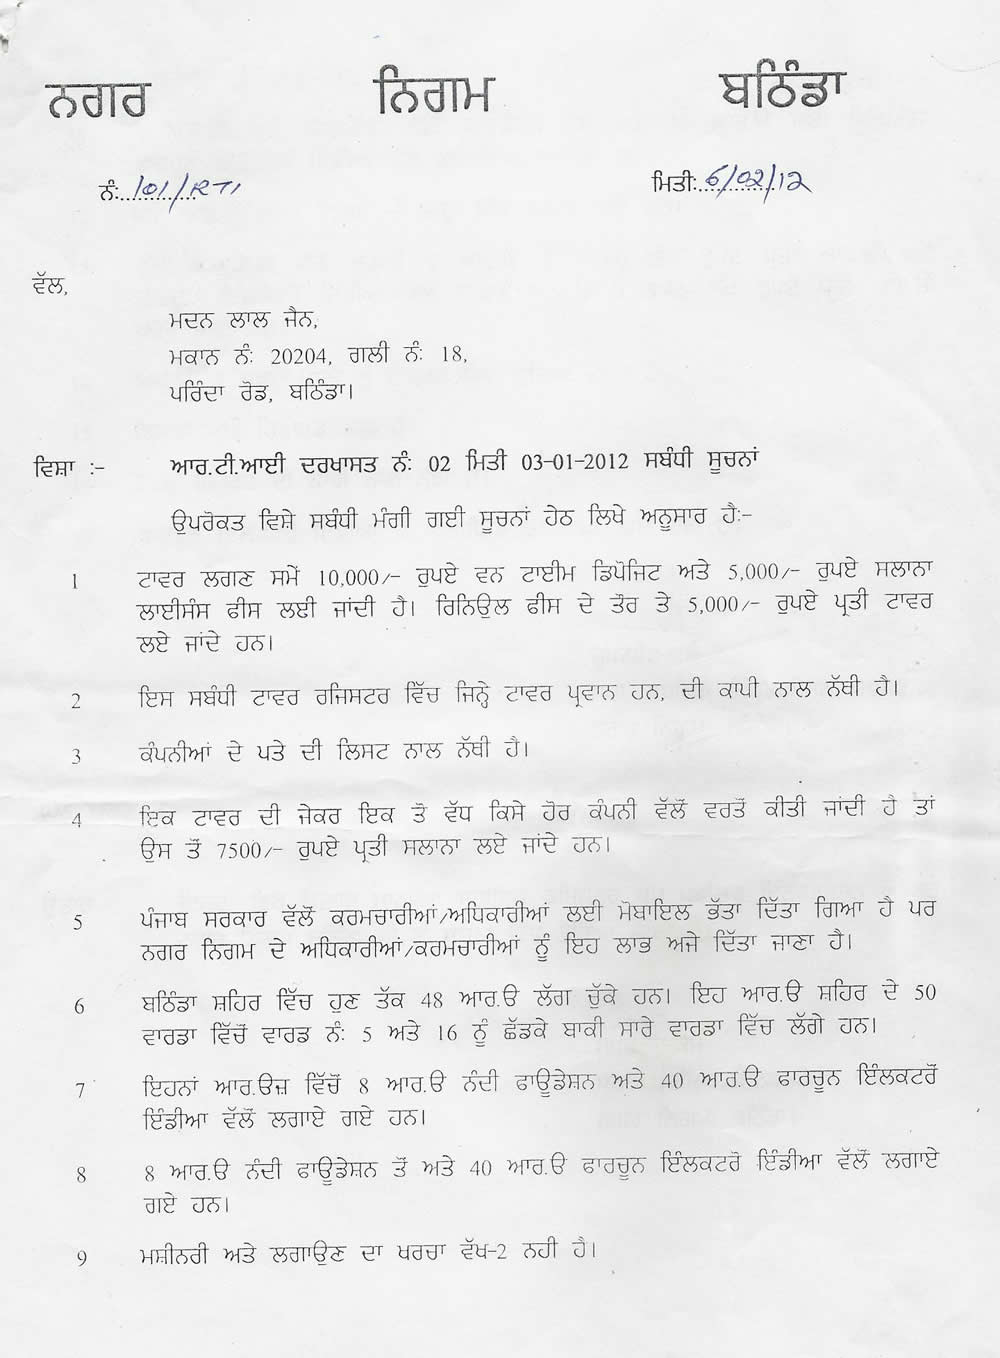 ਨਗਰ ਨਿਗਮ ਬਠਿੰਡਾ
ਨੰ: 101/RTI ਮਿਤੀ: 6/02/12
ਵੱਲ,
ਮਦਨ ਲਾਲ ਜੈਨ,
ਮਕਾਨ ਨੰ: 20204, ਗਲੀ ਨੰ: 18,
ਪਰਿੰਦਾ ਰੋਡ, ਬਠਿੰਡਾ।
ਵਿਸ਼ਾ :- ਆਰ.ਟੀ.ਆਈ ਦਰਖਾਸਤ ਨੰ: 02 ਮਿਤੀ 03-01-2012 ਸਬੰਧੀ ਸੂਚਨਾਂ
ਉਪਰੋਕਤ ਵਿਸ਼ੇ ਸਬੰਧੀ ਮੰਗੀ ਗਈ ਸੂਚਨਾਂ ਹੇਠ ਲਿਖੇ ਅਨੁਸਾਰ ਹੈ:-
1 ਟਾਵਰ ਲਗਣ ਸਮੇਂ 10,000/- ਰੁਪਏ ਵਨ ਟਾਈਮ ਡਿਪੋਜਿਟ ਅਤੇ 5,000/- ਰੁਪਏ ਸਲਾਨਾ
ਲਾਈਸੰਸ ਫੀਸ ਲਈ ਜਾਂਦੀ ਹੈ। ਰਿਨਿਉਲ ਫੀਸ ਦੇ ਤੌਰ ਤੇ 5,000/- ਰੁਪਏ ਪ੍ਰਤੀ ਟਾਵਰ
ਲਏ ਜਾਂਦੇ ਹਨ।
2 ਇਸ ਸਬੰਧੀ ਟਾਵਰ ਰਜਿਸਟਰ ਵਿੱਚ ਜਿਨ੍ਹੇ ਟਾਵਰ ਪ੍ਰਵਾਨ ਹਨ, ਦੀ ਕਾਪੀ ਨਾਲ ਨੱਥੀ ਹੈ।
3 ਕੰਪਨੀਆਂ ਦੇ ਪਤੇ ਦੀ ਲਿਸਟ ਨਾਲ ਨੱਥੀ ਹੈ।
4 ਇਕ ਟਾਵਰ ਦੀ ਜੇਕਰ ਇਕ ਤੋ ਵੱਧ ਕਿਸੇ ਹੋਰ ਕੰਪਨੀ ਵੱਲੋਂ ਵਰਤੋਂ ਕੀਤੀ ਜਾਂਦੀ ਹੈ ਤਾਂ
ਉਸ ਤੋਂ 7500/- ਰੁਪਏ ਪ੍ਰਤੀ ਸਲਾਨਾ ਲਏ ਜਾਂਦੇ ਹਨ।
5 ਪੰਜਾਬ ਸਰਕਾਰ ਵੱਲੋਂ ਕਰਮਚਾਰੀਆਂ/ਅਧਿਕਾਰੀਆਂ ਲਈ ਮੋਬਾਇਲ ਭੱਤਾ ਦਿੱਤਾ ਗਿਆ ਹੈ ਪਰ
ਨਗਰ ਨਿਗਮ ਦੇ ਅਧਿਕਾਰੀਆਂ/ਕਰਮਚਾਰੀਆਂ ਨੂੰ ਇਹ ਲਾਭ ਅਜੇ ਦਿੱਤਾ ਜਾਣਾ ਹੈ।
6 ਬਠਿੰਡਾ ਸ਼ਹਿਰ ਵਿੱਚ ਹੁਣ ਤੱਕ 48 ਆਰ.ਓ ਲੱਗ ਚੁੱਕੇ ਹਨ। ਇਹ ਆਰ.ਓ ਸ਼ਹਿਰ ਦੇ 50
ਵਾਰਡਾ ਵਿੱਚੋਂ ਵਾਰਡ ਨੰ: 5 ਅਤੇ 16 ਨੂੰ ਛੱਡਕੇ ਬਾਕੀ ਸਾਰੇ ਵਾਰਡਾ ਵਿੱਚ ਲੱਗੇ ਹਨ।
7 ਇਹਨਾਂ ਆਰ.ਓਜ਼ ਵਿੱਚੋਂ 8 ਆਰ.ਓ ਨੰਦੀ ਫਾਊਡੇਸ਼ਨ ਅਤੇ 40 ਆਰ.ਓ ਫਾਰਚੂਨ ਇੰਲਕਟਰੋਂ
ਇੰਡੀਆ ਵੱਲੋਂ ਲਗਾਏ ਗਏ ਹਨ।
8 8 ਆਰ.ਓ ਨੰਦੀ ਫਾਊਡੇਸ਼ਨ ਤੋਂ ਅਤੇ 40 ਆਰ.ਓ ਫਾਰਚੂਨ ਇੰਲਕਟਰੋ ਇੰਡੀਆ ਵੱਲੋਂ ਲਗਾਏ
ਗਏ ਹਨ।
9 ਮਸ਼ੀਨਰੀ ਅਤੇ ਲਗਾਉਣ ਦਾ ਖਰਚਾ ਵੱਖ-2 ਨਹੀ ਹੈ।